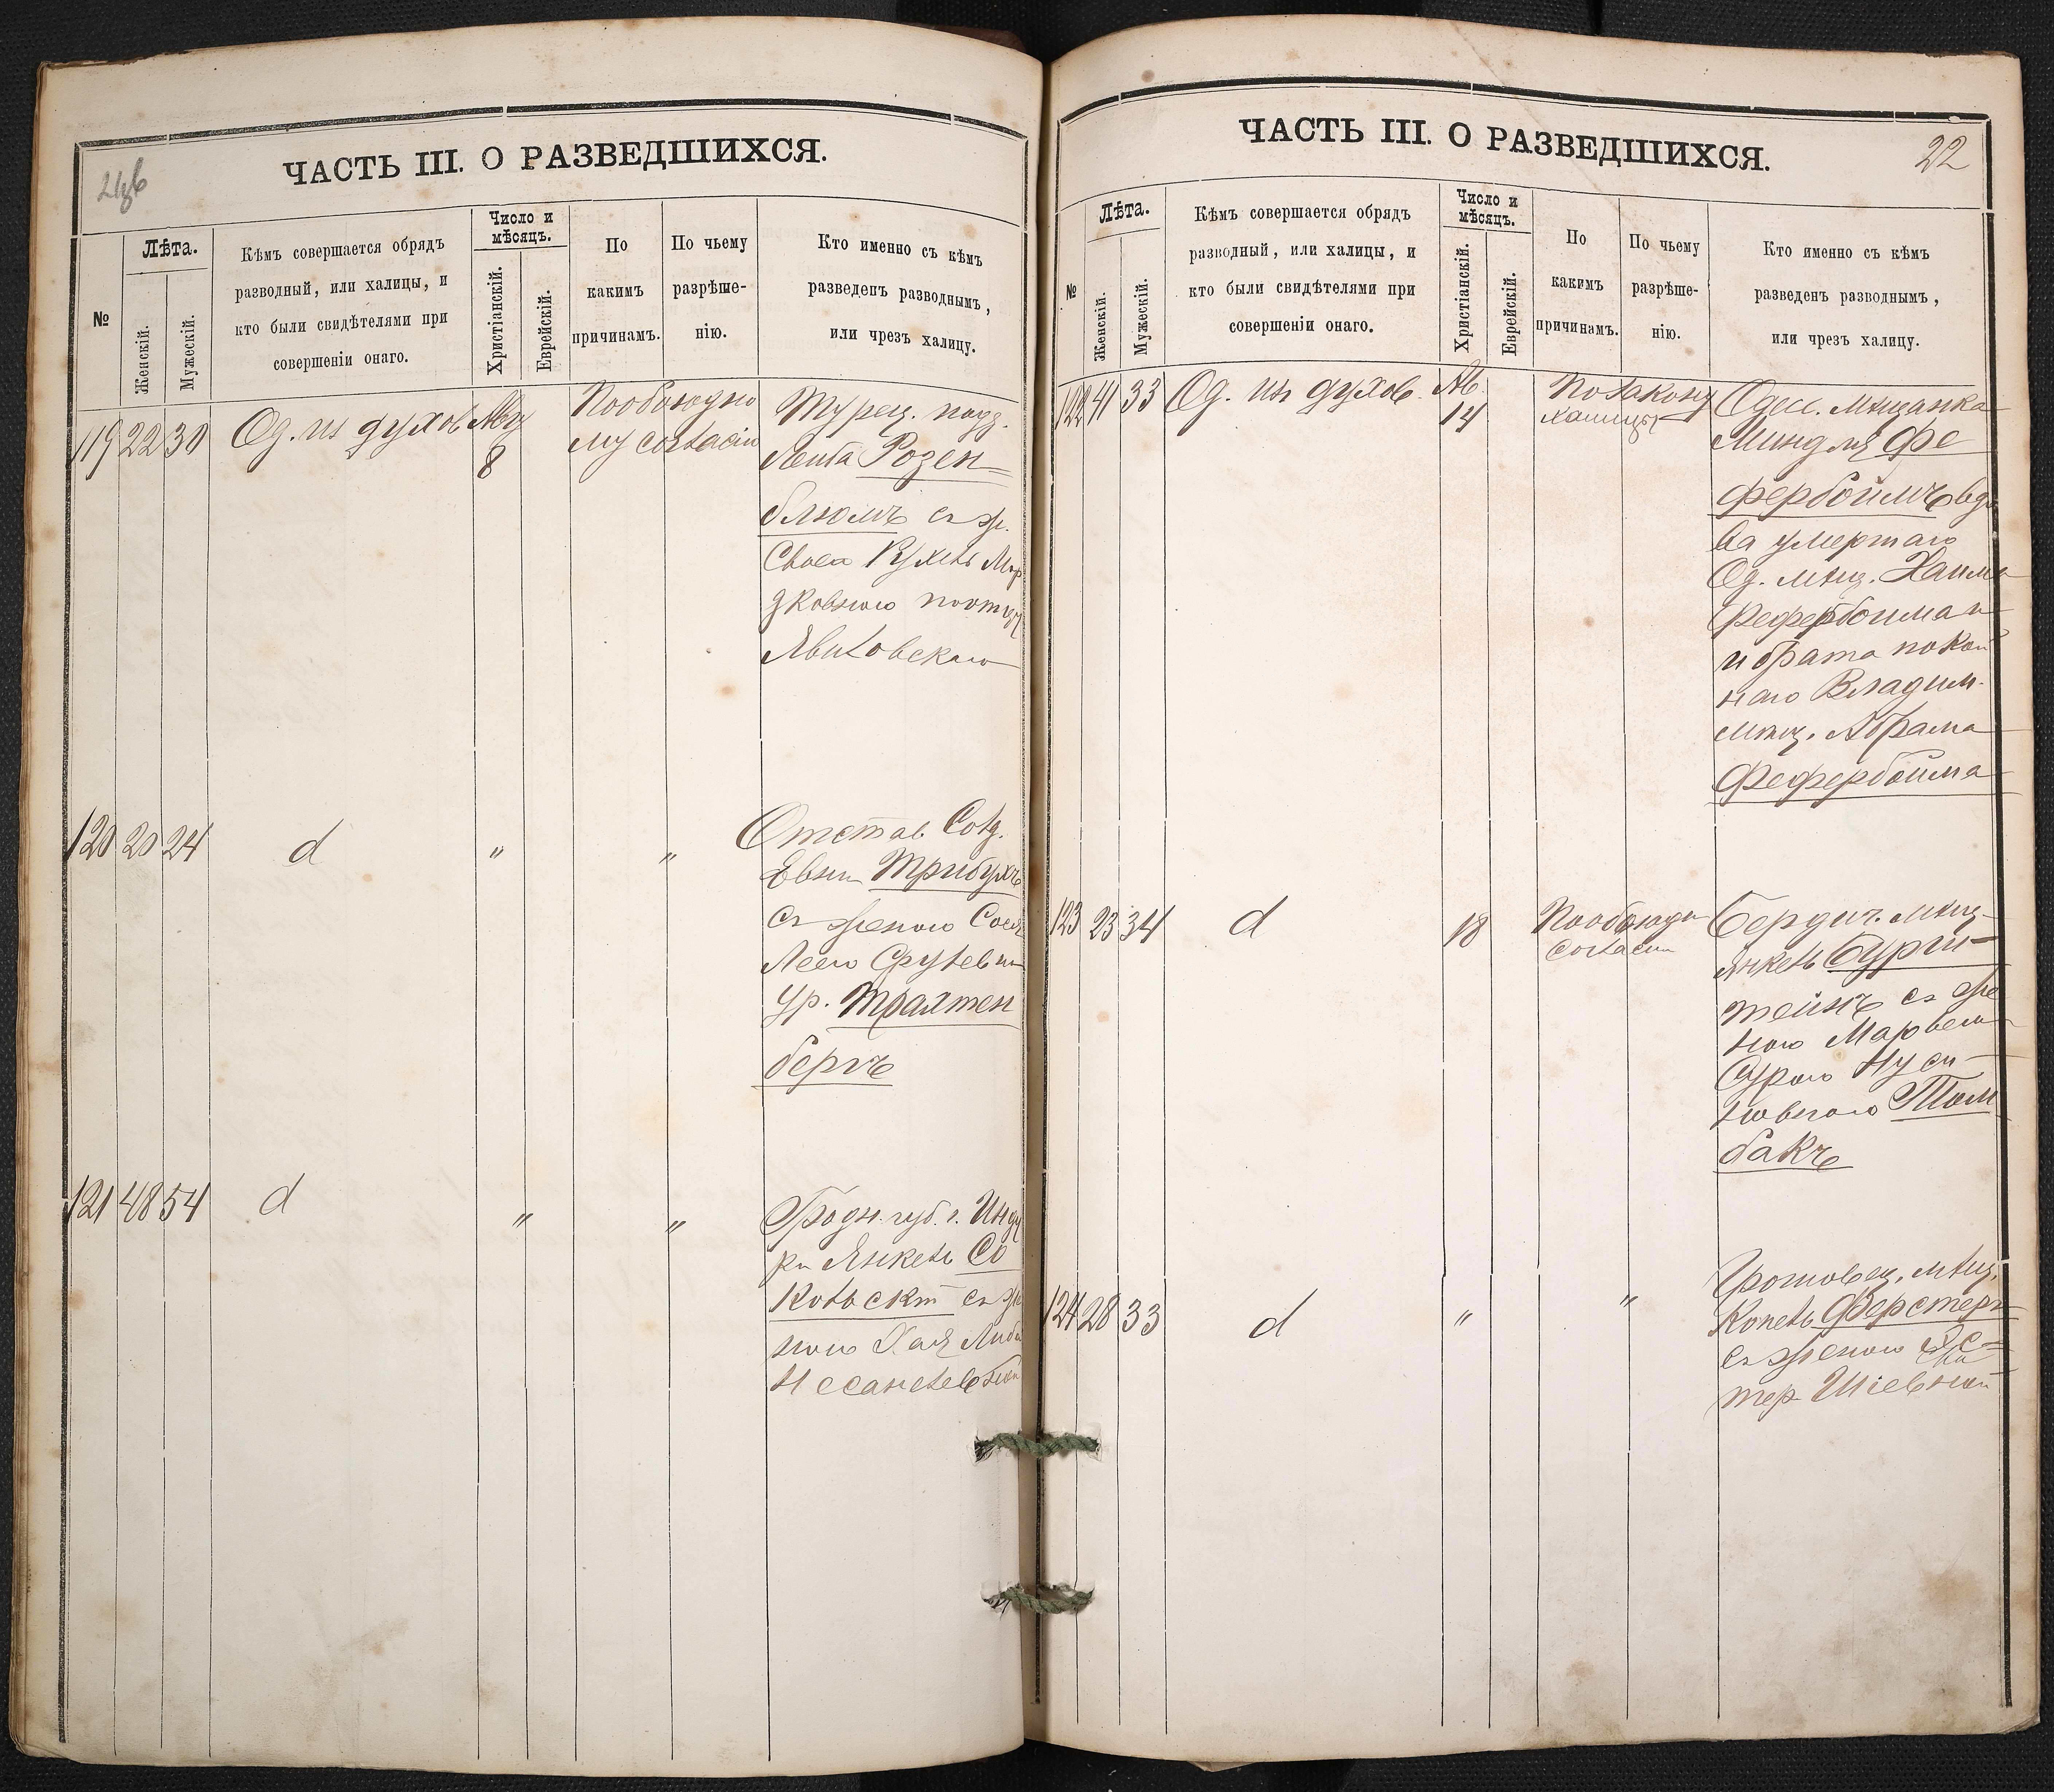 ЧАСТЬ III. О РАЗВЕДШИХСЯ.
№
Лѣта.
Женскій.
Мужескій.
Кѣмъ совершается обрядъ
разводный, или халицы, и
кто были свидѣтелями при
совершеніи онаго.
Число и
мѣсяцъ.
Христіанскій.
Еврейскій.
По
какимъ
причинамъ.
По чьему
разрѣше-
нію.
Кто именно съ кѣмъ
разведенъ разводнымъ,
или чрезъ халицу.
119 22 30 Од. из духов Авг
8
По обоюдно
му согласію
Турец. подд.
Лейба Розен
блюмъ съ ж.
Своею Рухль Мор
дковною
120 20 24 d " "
Отстав. Солд.
Трибухъ
съ женою Своею
Леею
ур. Трахтен
бергъ
121 48 54 d " "
Гродн. губ. г. Инду
ры Янкель Со
кольскій съ же
ною Хая Либа
ЧАСТЬ III. О РАЗВЕДШИХСЯ.
22
№
Лѣта.
Женскій.
Мужескій.
Кѣмъ совершается обрядъ
разводный, или халицы, и
кто были свидѣтелями при
совершеніи онаго.
Число и
мѣсяцъ.
Христіанскій.
Еврейскій.
По
какимъ
причинамъ.
По чьему
разрѣше-
нію.
Кто именно съ кѣмъ
разведенъ разводнымъ,
или чрезъ халицу.
122 41 33 Од. из духов. Ав.
14
По закону
халицы
Одес. мѣщанка
Миндля Фе
фербоймъ вдо
ва умершаго
Од. мѣщ. Хаима
Фефербойма
и брата покой
наго Владим.
мѣщ. Абрама
Фефербойма
123 23 34 d 18
По обоюдн
согласію
Бердич. мѣщ.
Янкель Бурш
тейнъ съ же
ною
Сурою Нуси
новною Том
бакъ
124 28 33 d " "
мѣщ.
Копель Ферстеръ
съ женою Эс
тер Шіевной